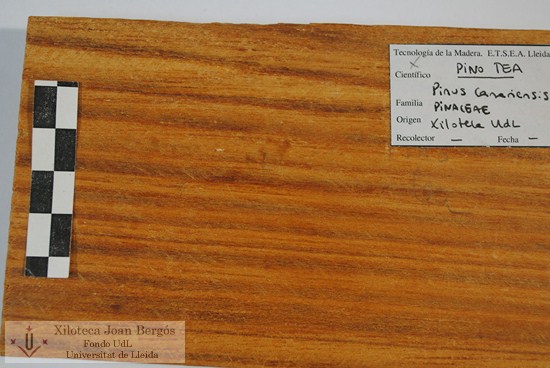 Tecnología de la Madera. E.T.S.E.A. Lleida
X PINO TEA
Científico
Pinus canariensis
Familia PINACEAE
Origen Xiloteca UdL
Recolector — Fecha —
Xiloteca Joan Bergós
Fondo UdL
Universitat de Lleida